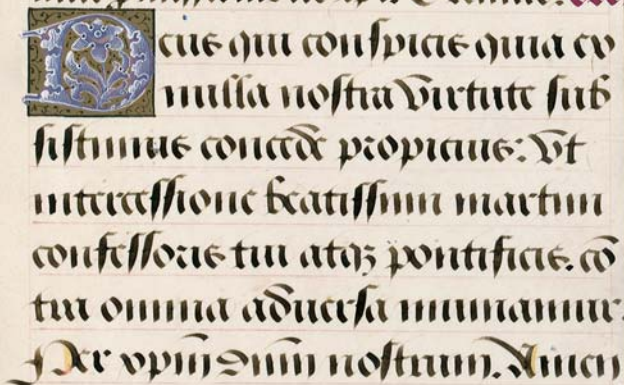 Deus qui conspicis quia ex
nulla nostra virtute sub
sistimus concede propicius: Vt
intercessione beatissimi martini
confessoris tui atqꝫ pontificis. cō
tra omnia aduersa muniamur.
Per xpm dnm nostrum. Amen